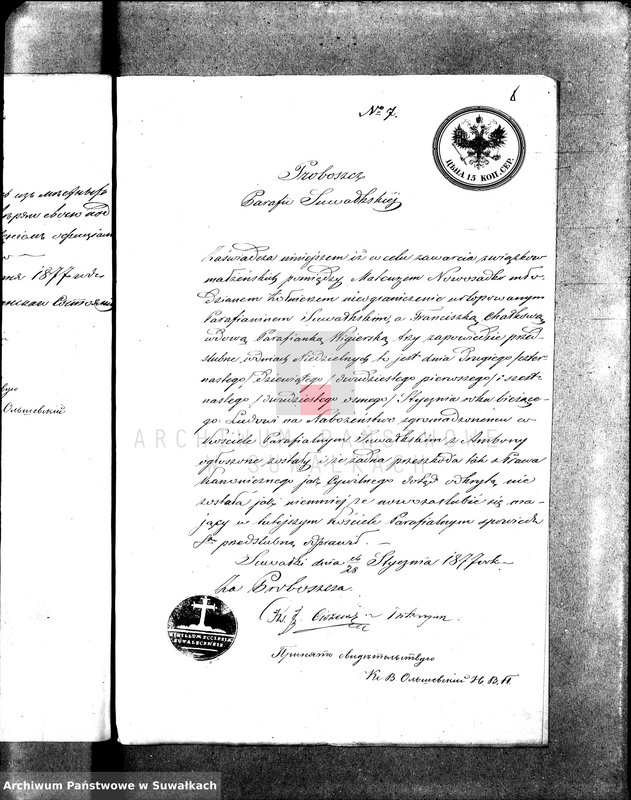 ъ изъ
1877 года
Ольшевскій
6
№ 7.
ЦѢНА 15 КОП. СЕР.
Proboszcz
Parafii Suwałkskiéj
Zaświadcza niniejszem iż w celu zawarcia związków
małżeńskich pomiędzy Mateuszem Nowosadko mło-
dzianem żołnierzem nieograniczenie urlopowanym
Parafianinem Suwałkskim, a Franciszką Chatkową
wdową Parafianką Wigierską trzy zapowiedzie przed-
ślubne, w dniach Niedzielnych, to jest dnia Drugiego /czter-
nastego/, dziewiątego /dwudziestego pierwszego/ i szest-
nastego /dwudziestego osmego/ Stycznia roku bieżące-
go Ludowi na Nabożeństwo zgromadzonemu w
kościele Parafialnym Suwałkskim z Ambony
ogłoszone zostały i że żadna przeszkoda tak z Prawa
kanonicznego jak Cywilnego dotąd odkrytą nie
została jak niemniej że nowozaślubić się ma-
jący w tutejszym kościele Parafialnym spowiedź
Stą przedślubną odprawił. –
Suwałki dnia 16/28 Stycznia 1877 rok –
Za Proboszcza
Ks. J.
SIGILLUM ECCLESIÆ
SUWALECENSIS
Принято свидѣтельствую
Кс В Ольшевскій Н. В. П.
ARCHIWUM PAŃSTWOWE
W SUWAŁKACH
Archiwum Państwowe w Suwałkach